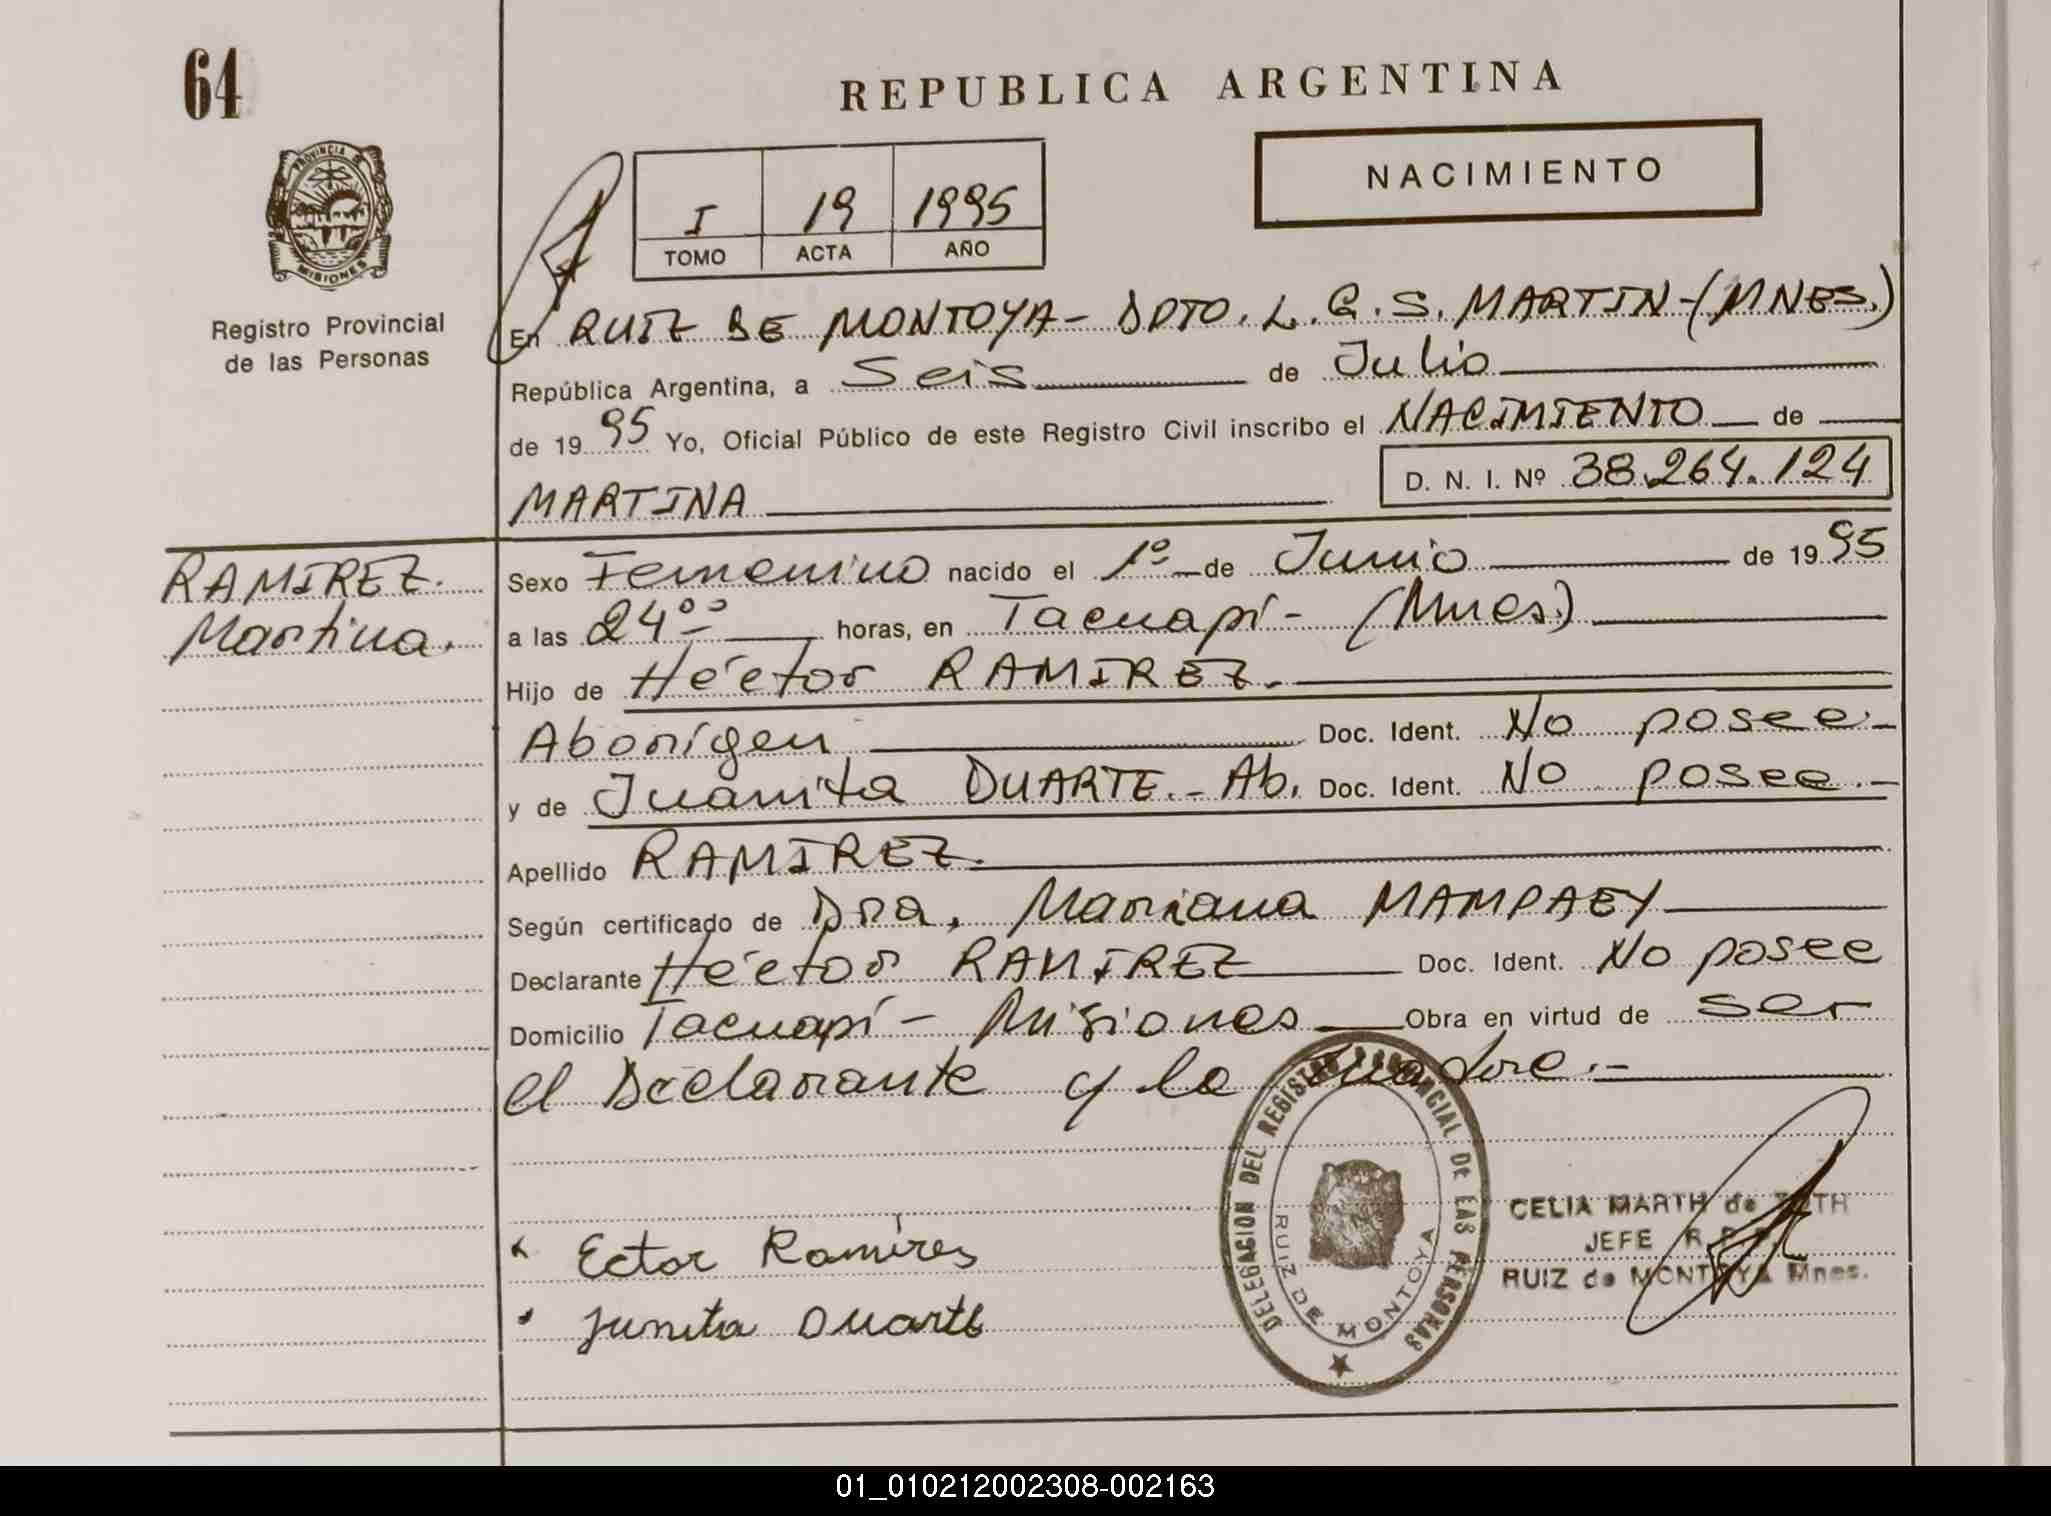 64
REPUBLICA ARGENTINA
PROVINCIA DE
MISIONES
Registro Provincial
de las Personas
I 19 1995
TOMO ACTA AÑO
NACIMIENTO
En RUIZ DE MONTOYA - DPTO. L. G. S. MARTIN - (MNES.)
República Argentina, a Seis de Julio
de 1995 Yo, Oficial Público de este Registro Civil inscribo el NACIMIENTO de
MARTINA D. N. I. Nº 38.264.124
RAMIREZ.
Martina.
Sexo Femenino nacido el 1º de Junio de 1995
a las 24ºº horas, en Tacuapí - (Mnes.)
Hijo de Héctor RAMIREZ.
Aborígen Doc. Ident. No posee.-
y de Juanita DUARTE.- Ab. Doc. Ident. No posee.-
Apellido RAMIREZ.
Según certificado de Dra. Mariana MAMPAEY
Declarante Héctor RAMIREZ Doc. Ident. No posee
Domicilio Tacuapí - Misiones Obra en virtud de ser
el Declarante y la madre.-
DELEGACION DEL REGISTRO PROVINCIAL DE LAS PERSONAS
RUIZ DE MONTOYA
CELIA MARTH de
JEFE R. P.
RUIZ de MONTOYA Mnes.
Ector Ramíres
Junita Duarte
01_010212002308-002163